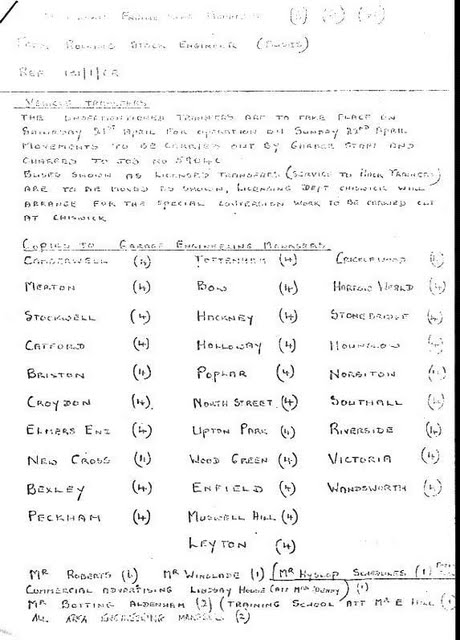 Engineering Managers
From Rolling Stock Engineer (Buses)
Ref
Vehicle Transfers
The undermentioned transfers are to take place on
Saturday 21st April for operation on Sunday 22nd April
Movements to be carried out by Garage Staff and
Charged to Job No
Buses shown as Licensed Transfers (Service to
are to be moved as shown, Licensing Dept Chiswick will
arrange for the special conversion work to be carried out
at Chiswick
Copies to Garage Engineering Managers
Camberwell (4) Tottenham (4) Cricklewood
Merton (4) Bow (4) Harrow Weald (4)
Stockwell (4) Hackney (4) Stonebridge (4)
Catford (4) Holloway (4) Hounslow (4)
Brixton (4) Poplar (4) Norbiton (4)
Croydon (4) North Street (4) Southall (4)
Elmers End (4) Upton Park (4) Riverside (4)
New Cross (4) Wood Green (4) Victoria (4)
Bexley (4) Enfield (4) Wandsworth (4)
Peckham (4) Muswell Hill (4)
Leyton (4)
Mr Roberts Mr Winslade (1) Mr Hyslop Schedules (1)
Commercial Advertising Lindsay House (Att Mrs (1)
Mr Botting Aldenham (2) (Training School Att Mr E Hill (1)
All Area Engineering Managers (2)